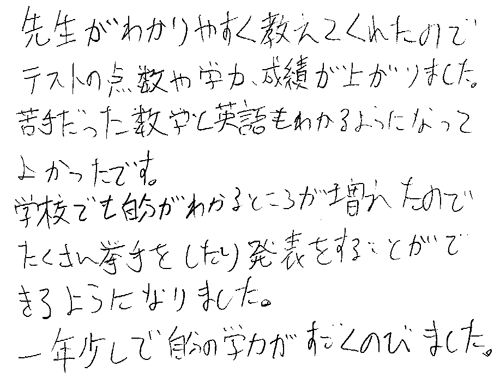 先生がわかりやすく教えてくれたので
テストの点数や学力、成績が上がりました。
苦手だった数学と英語もわかるようになって
よかったです。
学校でも自分がわかるところが増えたので
たくさん挙手をしたり発表をすることがで
きるようになりました。
一年少しで自分の学力がすごくのびました。